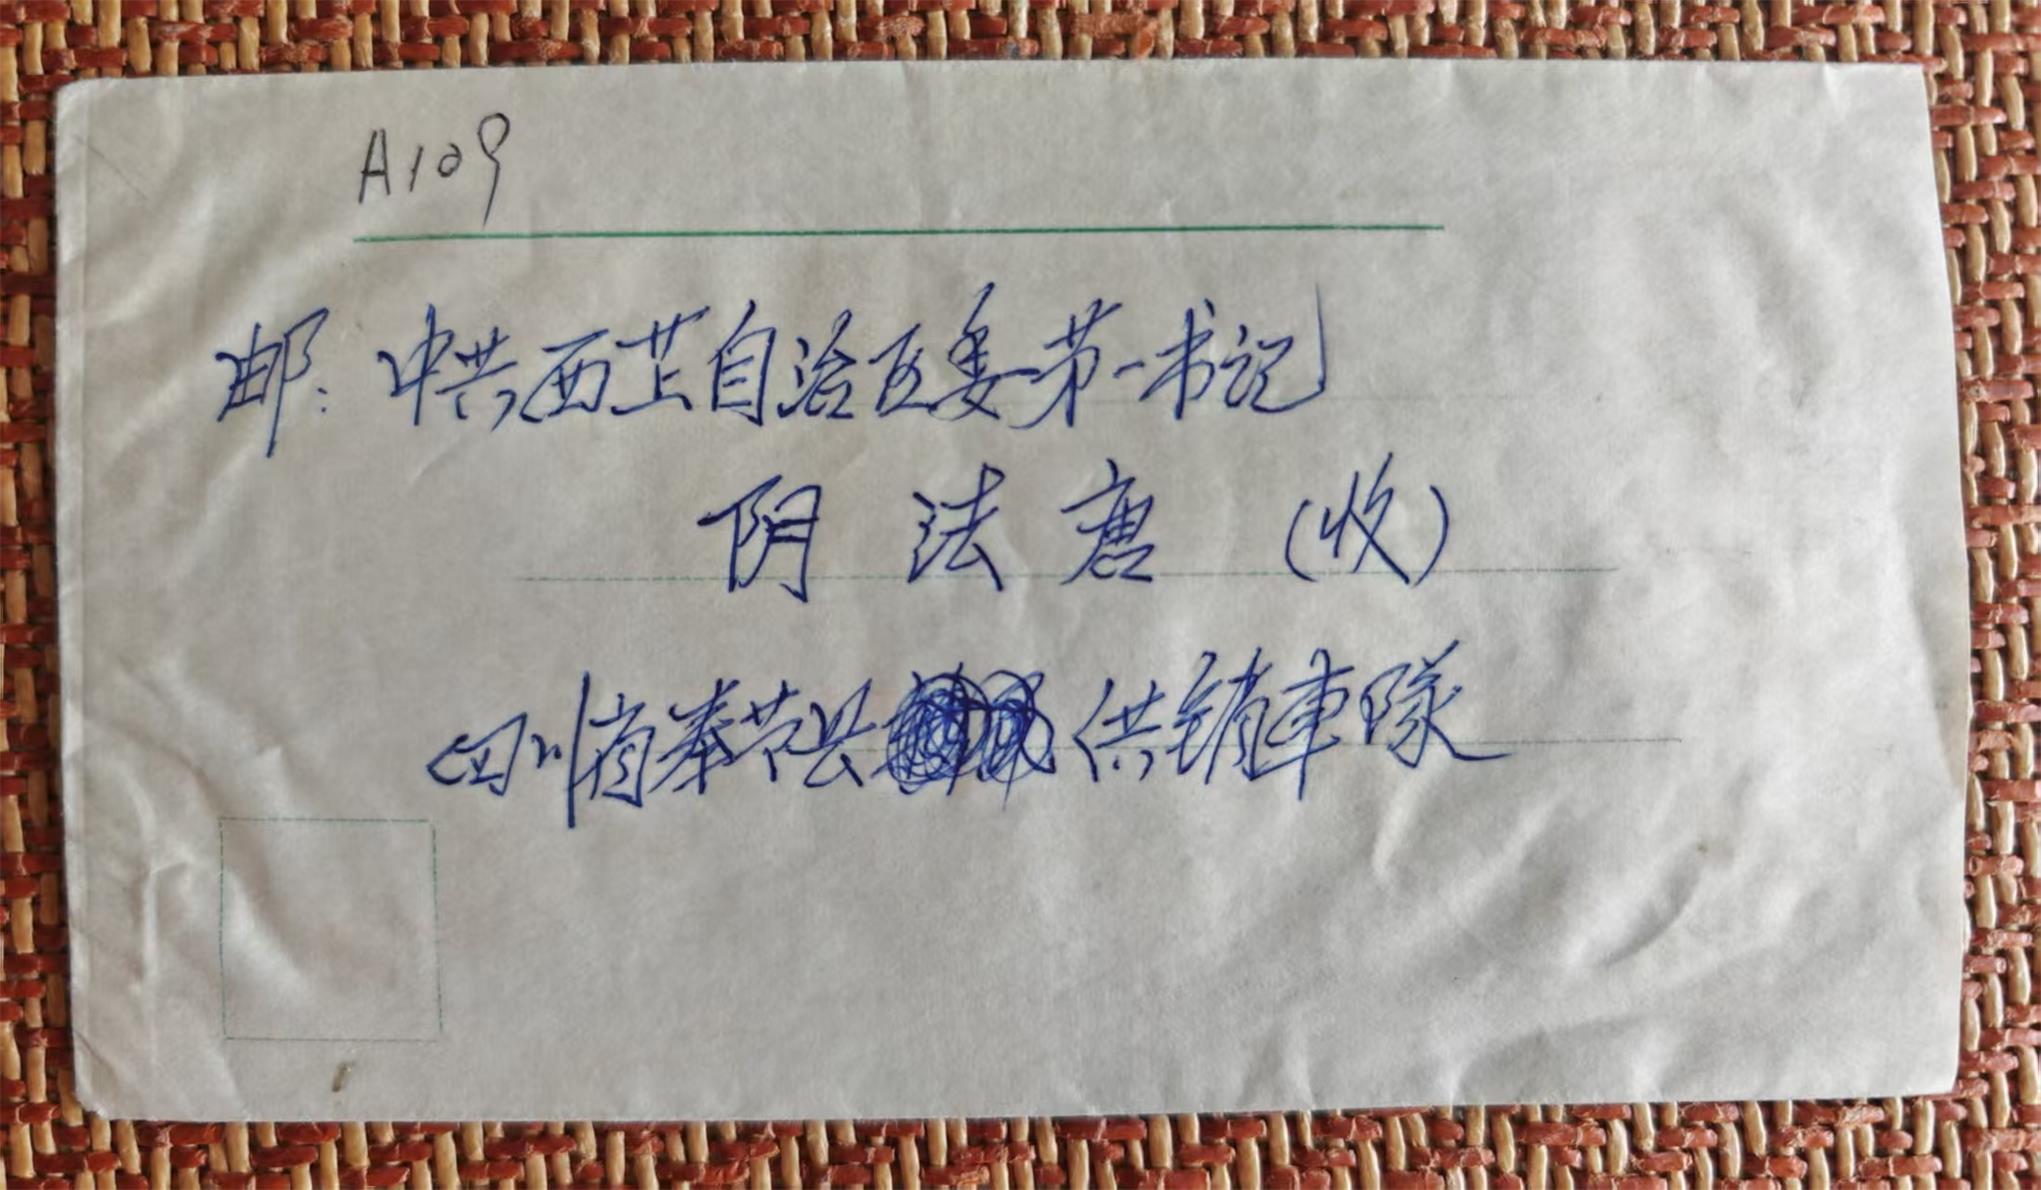 A109
邮：中共西芷自治区委第一书记
阴法唐（收）
四川省奉节县供销車隊